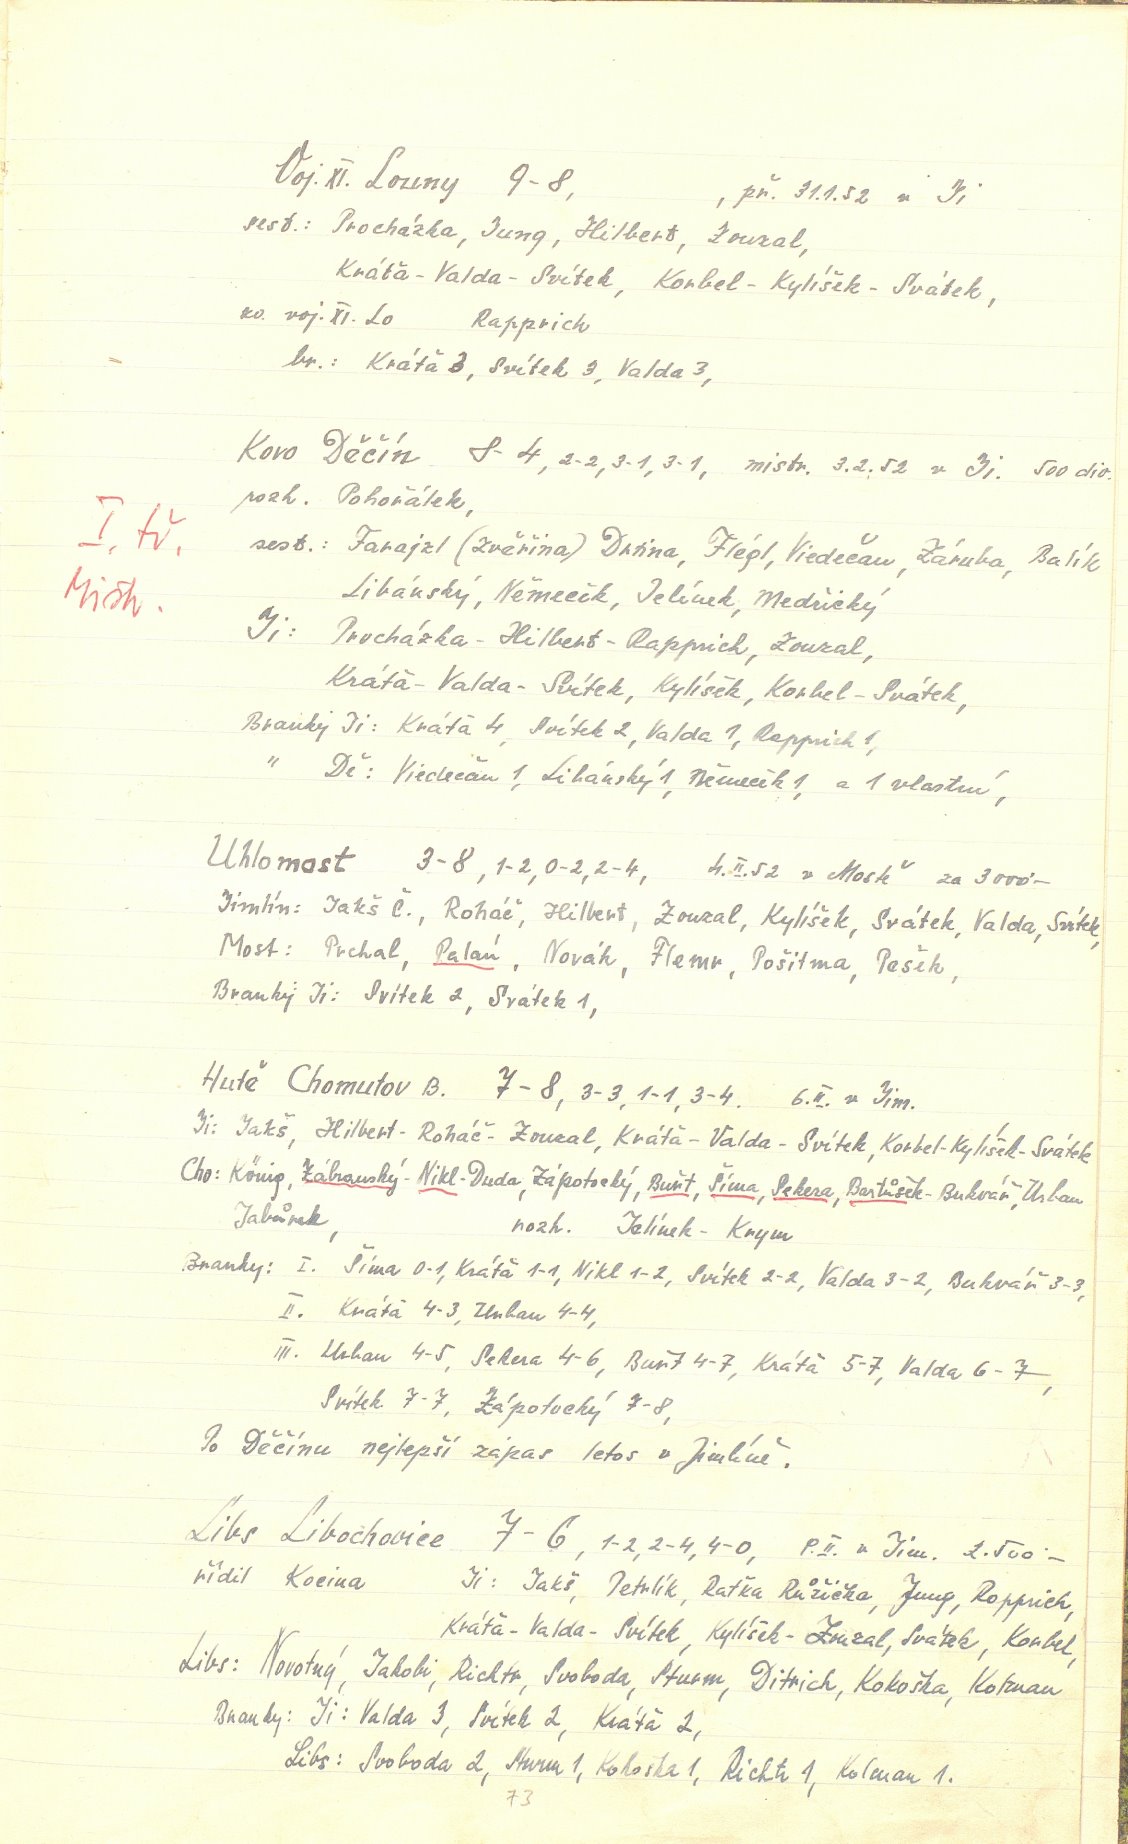 Voj. XI. Louny 9-8, , př. 31.1.52 v Ji
sest.: Procházka, Jung, Hilbert, Zouzal,
Krátà - Valda - Svítek, Korbel - Kylíšek - Svátek,
vo. voj. XI. Lo Rapprich
br.: Krátà 3, Svítek 3, Valda 3,
Kovo Děčín 8-4, 2-2, 3-1, 3-1, mistr. 3.2.52 v Ji. 500 div.
rozh. Pohořálek,
I. tř.
sest.: Farajzl (Zvěřina) Drtina, Flégl, Viedečan, Záruba, Balík
Mistr.
Libánský, Němečik, Jelínek, Medřický
Ji: Procházka - Hilbert - Rapprich, Zouzal,
Krátà - Valda - Svítek, Kylíšek, Korbel - Svátek,
Branky Ji: Krátà 4, Svítek 2, Valda 1, Rapprich 1,
" Dě: Viedečan 1, Libánský 1, Němečik 1, a 1 vlastní,
Uhlomost 3-8, 1-2, 0-2, 2-4, 4.II.52 v Mostě za 3000-
Jimlín: Jakš Č., Roháč, Hilbert, Zouzal, Kylíšek, Svátek, Valda, Svítek,
Most: Prchal, Palán, Novák, Flemr, Pošitma, Pešek,
Branky Ji: Svítek 2, Svátek 1,
Hutě Chomutov B. 7-8, 3-3, 1-1, 3-4. 6.II. v Jim.
Ji: Jakš, Hilbert - Roháč - Zouzal, Krátà - Valda - Svítek, Korbel - Kylíšek - Svátek
Cho: König, Zábranský - Nikl - Duda, Zápotocký, Buřt, Šíma, Sekera, Bartůšek - Bukvář, Urban
Jabůrek, rozh. Jelínek - Krym
Branky: I. Šíma 0-1, Krátà 1-1, Nikl 1-2, Svítek 2-2, Valda 3-2, Bukvář 3-3,
II. Krátà 4-3, Urban 4-4,
III. Urban 4-5, Sekera 4-6, Buřt 4-7, Krátà 5-7, Valda 6-7,
Svítek 7-7, Zápotocký 7-8,
Po Děčínu nejlepší zápas letos v Jimlíně.
Libs Libochovice 7-6, 1-2, 2-4, 4-0, 8.II. v Jim. 2.500-
řídil Kocina Ji: Jakš, Petrlík, Raťka Růžička, Jung, Rapprich,
Krátà - Valda - Svítek, Kylíšek - Zouzal, Svátek, Korbel,
Libs: Novotný, Jakobi, Richtr, Svoboda, Sturm, Ditrich, Kokoška, Kolman
Branky: Ji: Valda 3, Svítek 2, Krátà 2,
Libs: Svoboda 2, Sturm 1, Kokoška 1, Richtr 1, Kolman 1.
73